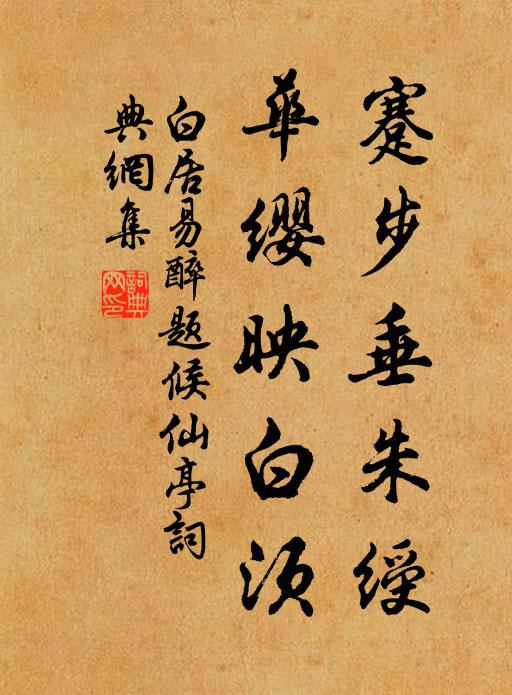 蹇步垂朱綬
華纓映白須
白居易醉題候仙亭詞
典網集
詞典
网印